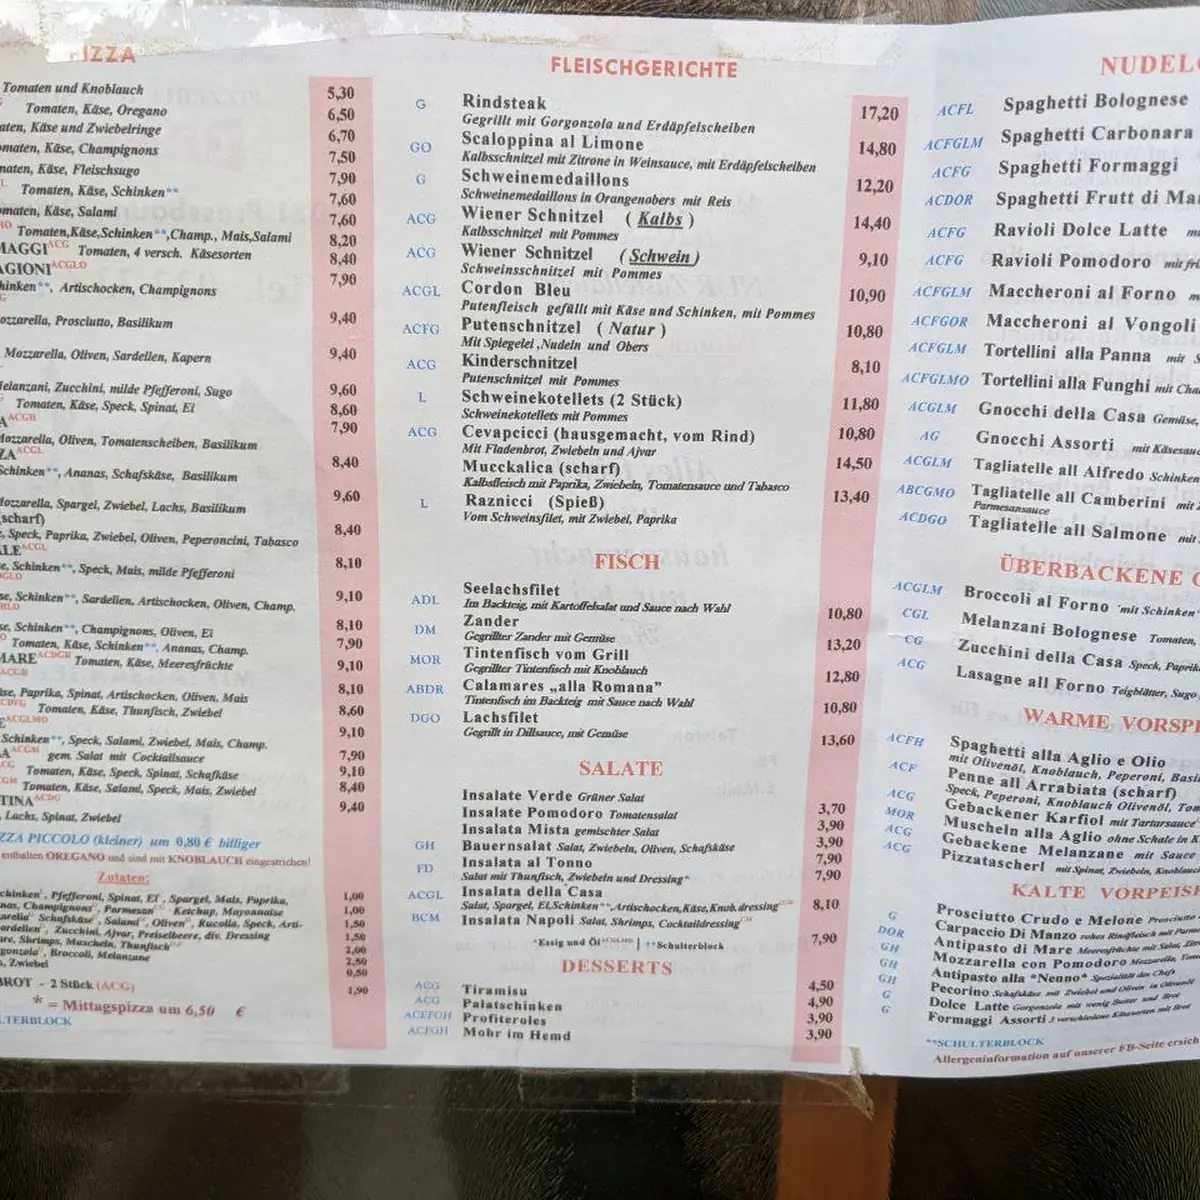 PIZZA
Tomaten und Knoblauch 5,30
Tomaten, Käse, Oregano 6,50
Käse und Zwiebelringe 6,70
Käse, Champignons 7,50
Käse, Fleischsugo 7,90
Tomaten, Käse, Schinken** 7,60
Käse, Salami 7,60
Tomaten,Käse,Schinken**,Champ., Mais,Salami 8,20
ACG Tomaten, 4 versch. Käsesorten 8,40
ACGLO 7,90
Artischocken, Champignons
Prosciutto, Basilikum 9,40
Mozzarella, Oliven, Sardellen, Kapern 9,40
Zucchini, milde Pfefferoni, Sugo 9,60
Tomaten, Käse, Speck, Spinat, Ei 8,60
ACGH 7,90
Oliven, Tomatenscheiben, Basilikum
ACGL 8,40
Ananas, Schafskäse, Basilikum
Spargel, Zwiebel, Lachs, Basilikum 9,60
(scharf)
Speck, Paprika, Zwiebel, Oliven, Peperoncini, Tabasco 8,40
ACGL
Schinken**, Speck, Mais, milde Pfefferoni 8,10
Schinken**, Sardellen, Artischocken, Oliven, Champ. 9,10
Schinken**, Champignons, Oliven, Ei 8,10
Tomaten, Käse, Schinken**, Ananas, Champ. 7,90
MARE ACDGR Tomaten, Käse, Meeresfrüchte 9,10
Paprika, Spinat, Artischocken, Oliven, Mais 8,10
Tomaten, Käse, Thunfisch, Zwiebel 8,60
ACGLMO 9,10
Schinken**, Speck, Salami, Zwiebel, Mais, Champ.
ACGM gem. Salat mit Cocktailsauce 7,90
Tomaten, Käse, Speck, Spinat, Schafkäse 9,10
Tomaten, Käse, Salami, Speck, Mais, Zwiebel 8,40
ACDG 9,40
Lachs, Spinat, Zwiebel
PICCOLO (kleiner) um 0,80 € billiger
enthalten OREGANO und sind mit KNOBLAUCH eingestrichen!
Zutaten:
Pfefferoni, Spinat, Ei, Spargel, Mais, Paprika, 1,00
Champignons, Parmesan Ketchup, Mayonnaise 1,00
Schafskäse, Salami, Oliven, Rucolla, Speck, Arti- 1,50
Zucchini, Ajvar, Preiselbeere, div. Dressing 1,50
Shrimps, Muscheln, Thunfisch 2,00
Broccoli, Melanzane 2,50
Zwiebel 0,50
BROT - 2 Stück (ACG) 1,90
* = Mittagspizza um 6,50 €
FLEISCHGERICHTE
G Rindsteak 17,20
Gegrillt mit Gorgonzola und Erdäpfelscheiben
GO Scaloppina al Limone 14,80
Kalbsschnitzel mit Zitrone in Weinsauce, mit Erdäpfelscheiben
G Schweinemedaillons 12,20
Schweinemedaillons in Orangenobers mit Reis
ACG Wiener Schnitzel (Kalbs) 14,40
Kalbsschnitzel mit Pommes
ACG Wiener Schnitzel (Schwein) 9,10
Schweinsschnitzel mit Pommes
ACGL Cordon Bleu 10,90
Putenfleisch gefüllt mit Käse und Schinken, mit Pommes
ACFG Putenschnitzel (Natur) 10,80
Mit Spiegelei ,Nudeln und Obers
ACG Kinderschnitzel 8,10
Putenschnitzel mit Pommes
L Schweinekotellets (2 Stück) 11,80
Schweinekotellets mit Pommes
ACG Cevapcicci (hausgemacht, vom Rind) 10,80
Mit Fladenbrot, Zwiebeln und Ajvar
Mucckalica (scharf) 14,50
Kalbsfleisch mit Paprika, Zwiebeln, Tomatensauce und Tabasco
L Raznicci (Spieß) 13,40
Vom Schweinsfilet, mit Zwiebel, Paprika
FISCH
Seelachsfilet
ADL Im Backteig, mit Kartoffelsalat und Sauce nach Wahl 10,80
Zander
DM Gegrillter Zander mit Gemüse 13,20
Tintenfisch vom Grill
MOR Gegrillter Tintenfisch mit Knoblauch 12,80
ABDR Calamares „alla Romana” 10,80
Tintenfisch im Backteig mit Sauce nach Wahl
DGO Lachsfilet 13,60
Gegrillt in Dillsauce, mit Gemüse
SALATE
Insalate Verde Grüner Salat 3,70
Insalate Pomodoro Tomatensalat 3,90
Insalata Mista gemischter Salat 3,90
GH Bauernsalat Salat, Zwiebeln, Oliven, Schafskäse 7,90
FD Insalata al Tonno 7,90
Salat mit Thunfisch, Zwiebeln und Dressing*
ACGL Insalata della Casa 8,10
Salat, Spargel, Ei,Schinken**,Artischocken,Käse,Knob.dressing
BCM Insalata Napoli Salat, Shrimps, Cocktaildressing 7,90
*Essig und Öl | **Schulterblock
DESSERTS
ACG Tiramisu 4,50
ACG Palatschinken 4,90
ACEFGH Profiteroles 3,90
ACFGH Mohr im Hemd 3,90
ACFL Spaghetti Bolognese
ACFGLM Spaghetti Carbonara
ACFG Spaghetti Formaggi
ACDOR Spaghetti Frutt di
ACFG Ravioli Dolce Latte
ACFG Ravioli Pomodoro
ACFGLM Maccheroni al Forno
ACFGOR Maccheroni al Vongoli
ACFGLM Tortellini alla Panna mit
ACFGLMO Tortellini alla Funghi mit
ACGLM Gnocchi della Casa Gemüse,
AG Gnocchi Assorti
ACGLM Tagliatelle all Alfredo Schinken
ABCGMO Tagliatelle all Camberini mit
Parmesansauce
ACDGO Tagliatelle all Salmone mit
ÜBERBACKENE
ACGLM Broccoli al Forno mit Schinken
CGL Melanzani Bolognese Tomaten,
CG Zucchini della Casa Speck,
ACG Lasagne all Forno Teigblätter, Sugo
WARME
ACFH Spaghetti alla Aglio e Olio
mit Olivenöl, Knoblauch, Peperoni,
ACF Penne all Arrabiata (scharf)
Speck, Peperoni, Knoblauch Olivenöl,
ACG Gebackener Karfiol mit Tartarsauce
MOR Muscheln alla Aglio ohne Schale in
ACG Gebackene Melanzane mit Sauce
ACG Pizzatascherl mit Spinat, Zwiebeln,
KALTE
G Prosciutto Crudo e Melone
DOR Carpaccio Di Manzo rohes Rindfleisch mit
GH Antipasto di Mare Meeresfrüchte mit Salat,
GH Mozzarella con Pomodoro Mozzarella,
GH Antipasto alla "Nenno" Spezialität des Chefs
G Pecorino Schafskäse mit Zwiebel und Oliven in Olivenöl
G Dolce Latte Gorgonzola mit wenig Butter und Brot
Formaggi Assorti 3 verschiedene Käsesorten mit Brot
**SCHULTERBLOCK
Allergeninformation auf unserer FB-Seite